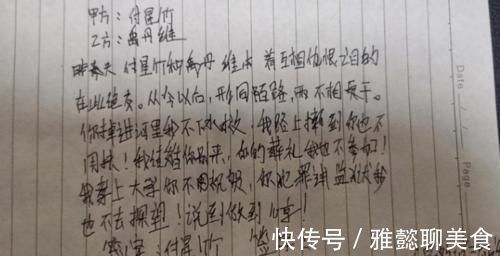 甲方：付星竹
乙方：禹丹维
付星竹和禹丹维 着互相仇恨之目的
在此绝交。从今以后，形同陌路，两不相干。
你掉进河里我不下水救，我路上撞到你也不
用扶！我住 你离开，你的葬礼我也不参加！
我考上大学你不用祝贺，你犯罪进监狱我
也不去探望！说到做到
签字：付星竹 签
快传号 / 雅懿聊美食
Date
Page